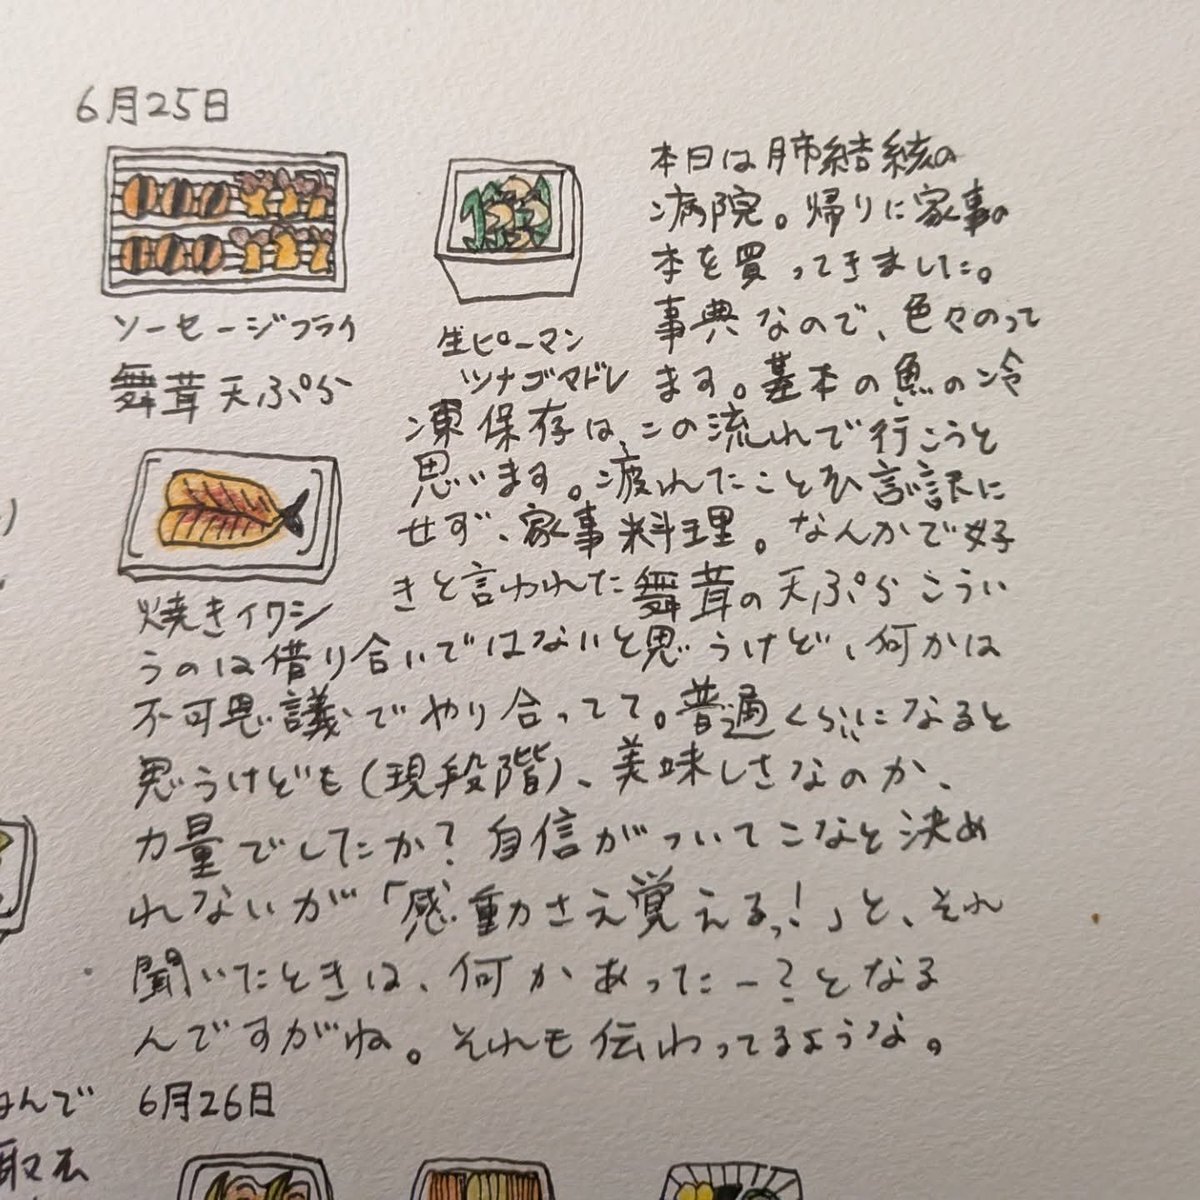 6月25日
ソーセージフライ
舞茸天ぷら
生ピーマン
ツナゴマドレ
焼きイワシ
本日は肺結核の
病院。帰りに家事の
本を買ってきました。
事典なので、色々のって
ます。基本の魚の冷
凍保存は、この流れで行こうと
思います。疲れたことを言訳に
せず、家事料理。なんかで好
きと言われた舞茸の天ぷらこうい
うのは借り合いではないと思うけど、何かは
不可思議でやり合ってて。普通くらいになると
思うけども(現段階)、美味しさなのか、
力量でしたか?自信がついてこなと決め
れないが「感動さえ覚えるっ!」と、それ
聞いたときは、何かあったー?となる
んですがね。それも伝わってるような。
はんで
6月26日